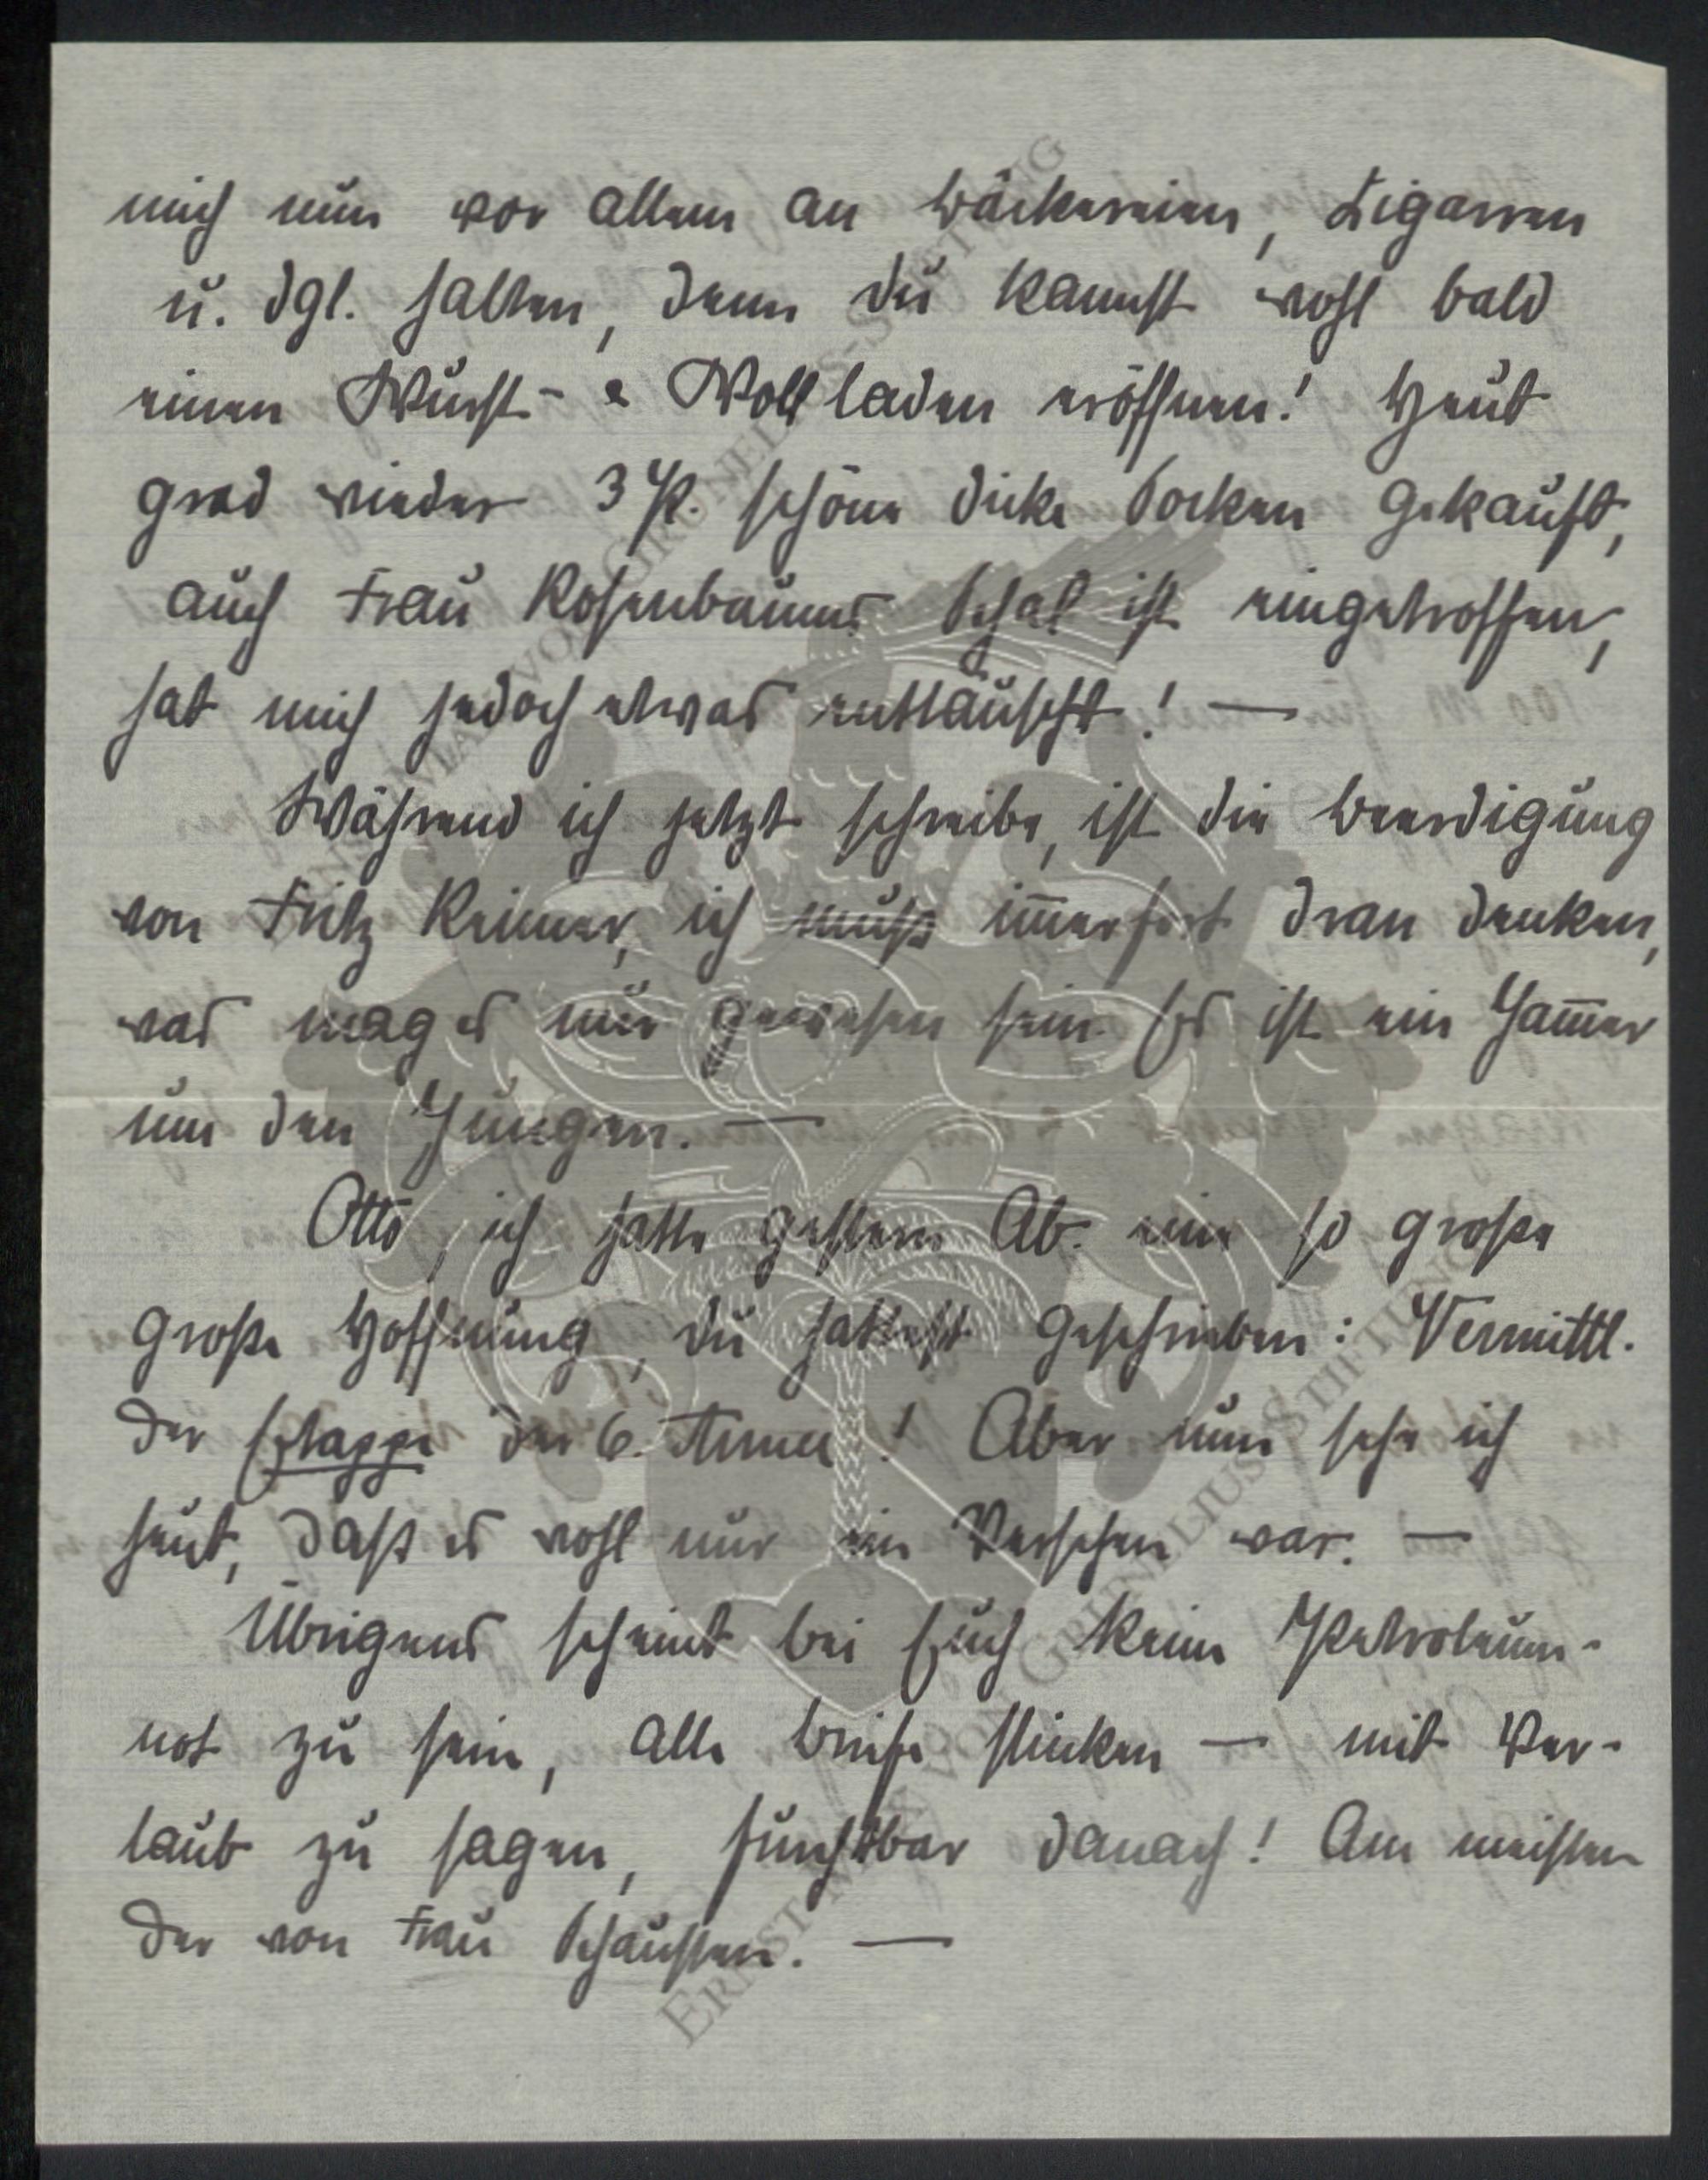 mich nun vor allem an Bäckereien, Zigarren
u. dgl. halten, denn du kannst wohl bald
einen Wurst- & Wollladen eröffnen! Heut
grad wieder 3 P. schöne dicke Socken gekauft,
auch Frau Rosenbaums Schal ist eingetroffen,
hat mich jedoch etwas enttäuscht! —
Während ich jetzt schreibe, ist die Beerdigung
von Fritz, ich muß im̅erfort dran denken,
was mag es nur gewesen sein. Es ist ein Jam̅er
um den Jungen. —
Otto, ich hatte gestern Ab. eine so große
große Hoffnung, du hattest geschrieben: Vermittl.
der Etappe der 6. Armee! Aber nun sehe ich
heut, daß es wohl nur ein Versehen war. —
Übrigens scheint bei Euch keine Petroleum-
not zu sein, alle Briefe stinken — mit Ver-
laub zu sagen, furchtbar danach! Am meisten
der von Frau. —
ERNST MAX VON GRUNELIUS-STIFTUNG
ERNST MAX VON GRUNELIUS-STIFTUNG